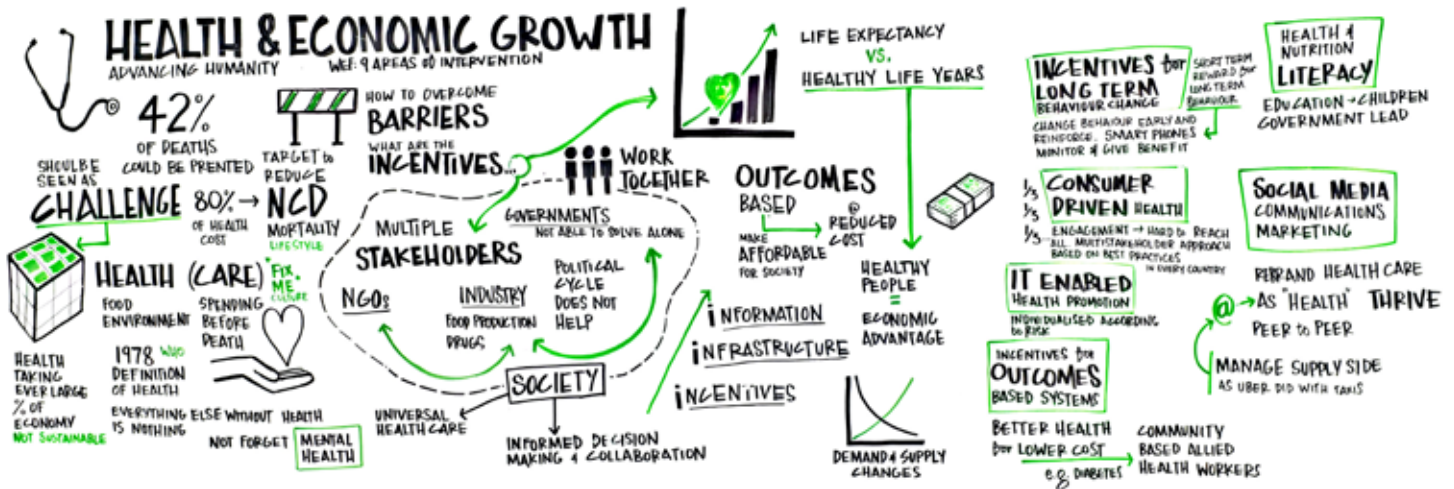 HEALTH & ECONOMIC GROWTH
ADVANCING HUMANITY
WEF: 9 AREAS OF INTERVENTION
42%
OF DEATHS
COULD BE PRENTED
SHOULD BE
SEEN AS
CHALLENGE
80%
OF HEALTH
COST
TARGET to
REDUCE
NCD
MORTALITY
LIFESTYLE
HOW TO OVERCOME
BARRIERS
WHAT ARE THE
INCENTIVES...
HEALTH (CARE)
"FIX
ME"
CULTURE
FOOD
ENVIRONMENT
SPENDING
BEFORE
DEATH
HEALTH
TAKING
EVER LARGE
% OF
ECONOMY
NOT SUSTAINABLE
1978 WHO
DEFINITION
OF HEALTH
EVERYTHING ELSE WITHOUT HEALTH
IS NOTHING
NOT FORGET
MENTAL
HEALTH
WORK
TOGETHER
MULTIPLE
STAKEHOLDERS
GOVERNMENTS
NOT ABLE TO SOLVE ALONE
NGOs
INDUSTRY
FOOD PRODUCTION
DRUGS
POLITICAL
CYCLE
DOES NOT
HELP
SOCIETY
UNIVERSAL
HEALTH CARE
INFORMED DECISION
MAKING & COLLABORATION
LIFE EXPECTANCY
VS.
HEALTHY LIFE YEARS
OUTCOMES
BASED
@
REDUCED
COST
MAKE
AFFORDABLE
FOR SOCIETY
HEALTHY
PEOPLE
=
ECONOMIC
ADVANTAGE
iNFORMATION
iNFRASTRUCTURE
iNCENTIVES
DEMAND & SUPPLY
CHANGES
INCENTIVES for
LONG TERM
BEHAVIOUR CHANGE
SHORT TERM
REWARD for
LONG TERM
BEHAVIOUR
CHANGE BEHAIOUR EARLY AND
REINFORCE. SMART PHONES
MONITOR & GIVE BENEFIT
HEALTH &
NUTRITION
LITERACY
EDUCATION → CHILDREN
GOVERNMENT LEAD
1/3
1/3
1/3
CONSUMER
DRIVEN HEALTH
ENGAGEMENT → HARD to REACH
ALL MULTISTAKEHOLDER APPROACH
BASED ON BEST PRACTICES
IN EVERY COUNTRY
SOCIAL MEDIA
COMMUNICATIONS
MARKETING
IT ENABLED
HEALTH PROMOTION
INDIVIDUALISED ACCORDING
to RISK
REBRAND HEALTH CARE
@ → AS "HEALTH" THRIVE
PEER to PEER
MANAGE SUPPLY SIDE
AS UBER DID WITH TAXIS
INCENTIVES for
OUTCOMES
BASED SYSTEMS
BETTER HEALTH
for LOWER COST
e.g. DIABETES
COMMUNITY
BASED ALLIED
HEALTH WORKERS